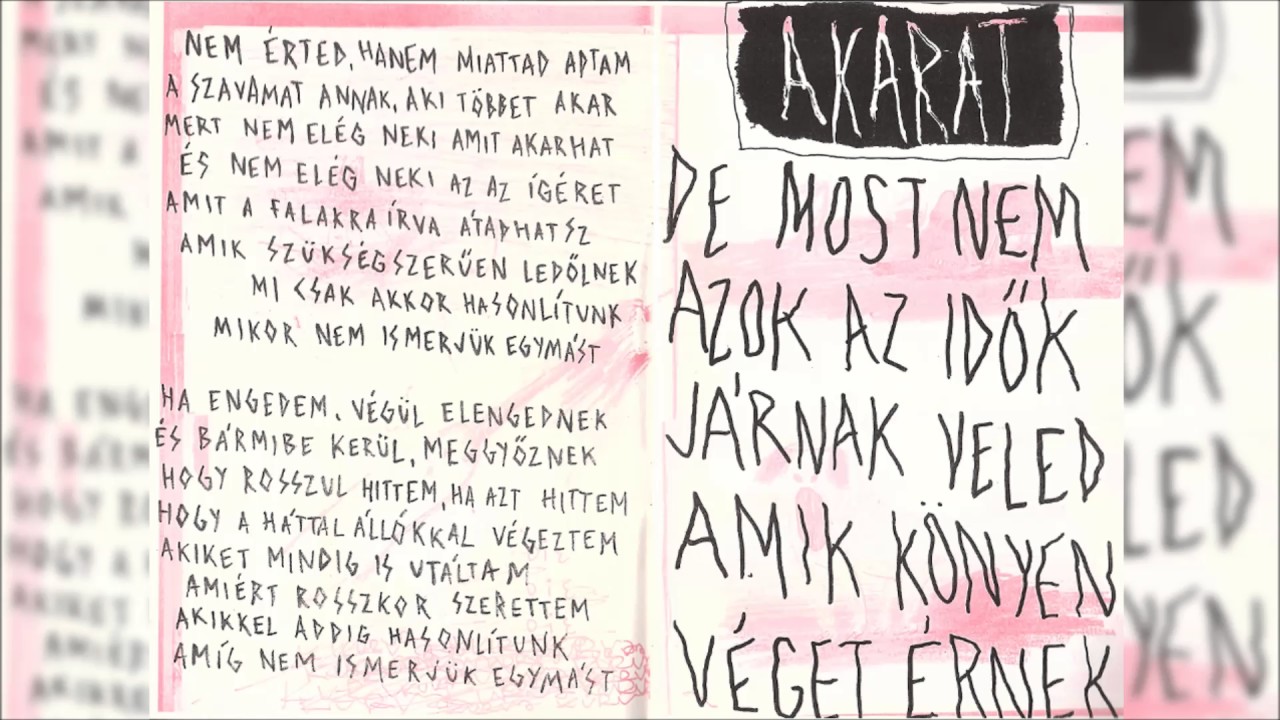 NEM ÉRTED, HANEM MIATTAD ADTAM
A SZAVAMAT ANNAK, AKI TÖBBET AKAR
MERT NEM ELÉG NEKI AMIT AKARHAT
ÉS NEM ELÉG NEKI AZ AZ ÍGÉRET
AMIT A FALAKRA ÍRVA ÁTADHATSZ
AMIK SZÜKSÉGSZERŰEN LEDŐLNEK
MI CSAK AKKOR HASONLÍTUNK
MIKOR NEM ISMERJÜK EGYMÁST
HA ENGEDEM, VÉGÜL ELENGEDNEK
ÉS BÁRMIBE KERÜL, MEGGYŐZNEK
HOGY ROSSZUL HITTEM, HA AZT HITTEM
HOGY A HÁTTAL ÁLLÓKKAL VÉGEZTEM
AKIKET MINDIG IS UTÁLTAM
AMIÉRT ROSSZKOR SZERETTEM
AKIKKEL ADDIG HASONLÍTUNK
AMÍG NEM ISMERJÜK EGYMÁST
AKARAT
DE MOST NEM
AZOK AZ IDŐK
JÁRNAK VELED
AMIK KÖNYEN
VÉGET ÉRNEK